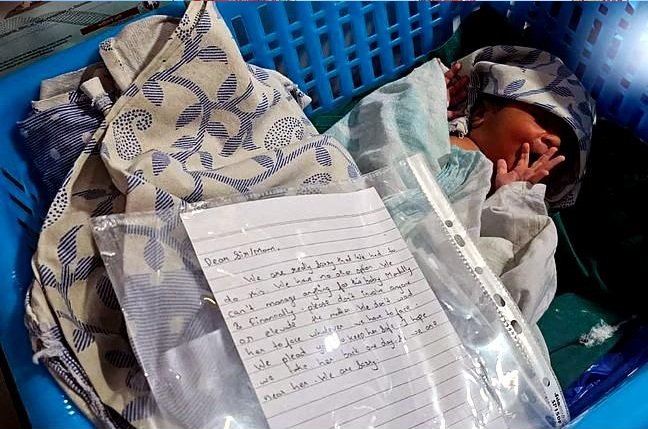 Dear Sir/Mam,
We are really Sorry that We had to
do this. We have no other option. We
can't manage anything for this baby Mentally
& Financially. please don't involve anyone
or elevate the matter We don't want
her to face whatever we have to face.
We plead you to keep her Safe. I hope
we take her back one day. & we are
near her. We are Sorry